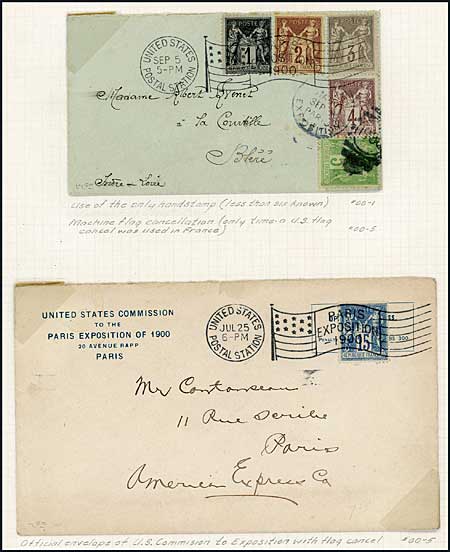 UNITED STATES
SEP 5
5-PM
POSTAL STATION
1
2
3
1900.
4
5
Madame Albert
à La
Bléré
Indre-et-Loire
Use of the only handstamp (less than six known) #00-1
Machine flag cancellation (only time a U.S. flag #00-5
cancel was used in France)
UNITED STATES COMMISSION
TO THE
PARIS EXPOSITION OF 1900
20 AVENUE RAPP
PARIS
UNITED STATES
JUL 25
6-PM
POSTAL STATION
PARIS
EXPOSITION
1900.
15
Mr
11 Rue Scribe
Paris
American Express Co
Official envelope of U.S. Commision to Exposition with flag cancel #00-5